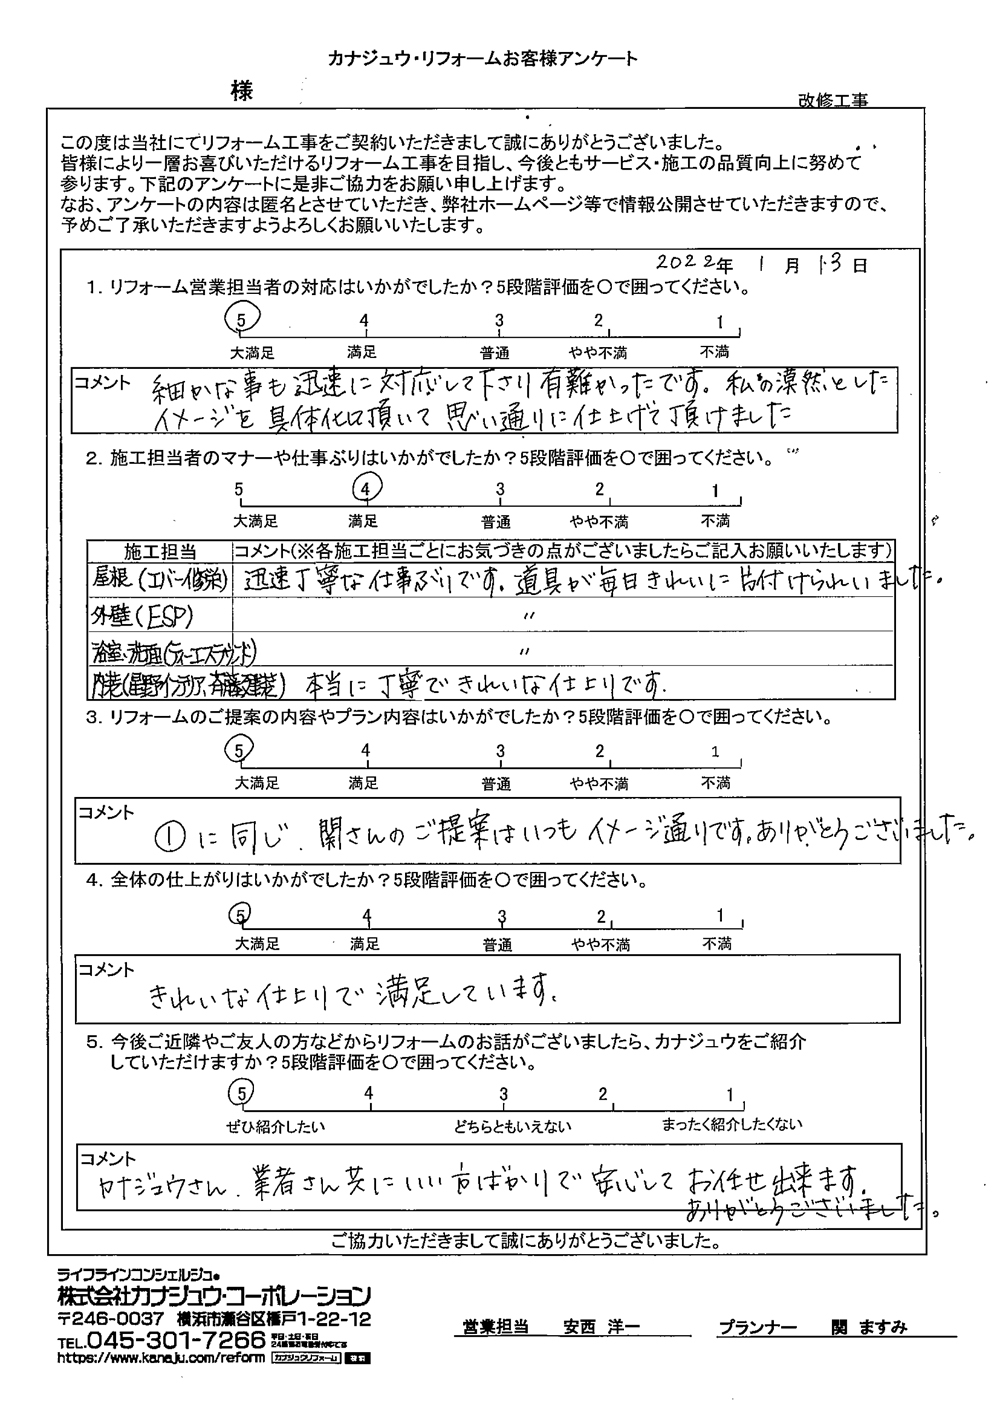 カナジュウ・リフォームお客様アンケート
様
改修工事
この度は当社にてリフォーム工事をご契約いただきまして誠にありがとうございました。
皆様により一層お喜びいただけるリフォーム工事を目指し、今後ともサービス・施工の品質向上に努めて
参ります。下記のアンケートに是非ご協力をお願い申し上げます。
なお、アンケートの内容は匿名とさせていただき、弊社ホームページ等で情報公開させていただきますので、
予めご了承いただきますようよろしくお願いいたします。
2022年 1月 13日
1. リフォーム営業担当者の対応はいかがでしたか？5段階評価を〇で囲ってください。
5 4 3 2 1
大満足 満足 普通 やや不満 不満
コメント 細かな事も迅速に対応して下さり有難かったです。私の漠然とした
イメージを具体化して頂いて思い通りに仕上げて頂けました
2. 施工担当者のマナーや仕事ぶりはいかがでしたか？5段階評価を〇で囲ってください。
5 4 3 2 1
大満足 満足 普通 やや不満 不満
施工担当 コメント(※各施工担当ごとにお気づきの点がございましたらご記入お願いいたします)
屋根(エバー修栄) 迅速丁寧な仕事ぶりです。道具が毎日きれいに片付けられいました。
外壁(ESP) 〃
浴室・洗面(ティーエスラウンド) 〃
内装(星野インテリア、斉藤建装) 本当に丁寧できれいな仕上りです.
3. リフォームのご提案の内容やプラン内容はいかがでしたか？5段階評価を〇で囲ってください。
5 4 3 2 1
大満足 満足 普通 やや不満 不満
コメント
①に同じ. 関さんのご提案はいつもイメージ通りです。ありがとうございました。
4. 全体の仕上がりはいかがでしたか？5段階評価を〇で囲ってください。
5 4 3 2 1
大満足 満足 普通 やや不満 不満
コメント
きれいな仕上りで満足しています.
5. 今後ご近隣やご友人の方などからリフォームのお話がございましたら、カナジュウをご紹介
していただけますか？5段階評価を〇で囲ってください。
5 4 3 2 1
ぜひ紹介したい どちらともいえない まったく紹介したくない
コメント
カナジュウさん、業者さん共にいい方ばかりで安心してお任せ出来ます.
ありがとうございました。
ご協力いただきまして誠にありがとうございました。
ライフラインコンシェルジュ●
株式会社カナジュウ・コーポレーション
〒246-0037 横浜市瀬谷区橋戸1-22-12
TEL.045-301-7266
https://www.kanaju.com/reform カナジュウリフォーム 検索
営業担当 安西 洋一
プランナー 関 ますみ